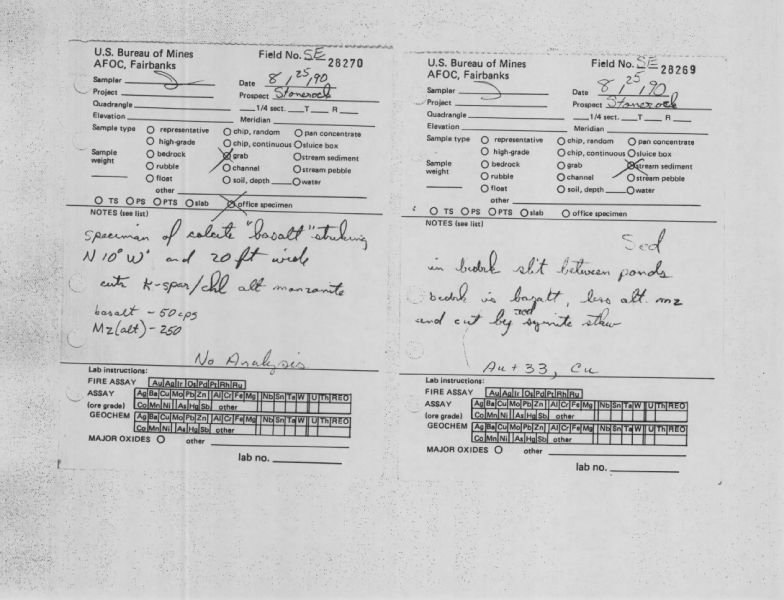 U.S. Bureau of Mines
AFOC, Fairbanks
Field No. SE 28270
Sampler
Date 8/25/90
Project
Prospect Stonerock
Quadrangle
1/4 sect. T R
Elevation
Meridian
Sample type
representative
chip, random
pan concentrate
high-grade
chip, continuous
sluice box
Sample weight
bedrock
grab
stream sediment
rubble
channel
stream pebble
float
soil, depth
water
other
TS PS PTS slab office specimen
NOTES (see list)
Speciman of calcite "basalt" striking
N 10° W and 20 ft wide
cuts K-spar/chl alt monzonite
basalt - 50 cps
Mz(alt) - 250
No Analysis
Lab instructions:
FIRE ASSAY Au Ag Ir Os Pd Pt Rh Ru
ASSAY Ag Ba Cu Mo Pb Zn Al Cr Fe Mg Nb Sn Ta W U Th REO
(ore grade) Co Mn Ni As Hg Sb other
GEOCHEM Ag Ba Cu Mo Pb Zn Al Cr Fe Mg Nb Sn Ta W U Th REO
Co Mn Ni As Hg Sb other
MAJOR OXIDES other
lab no.
U.S. Bureau of Mines
AFOC, Fairbanks
Field No. SE 28269
Sampler
Date 8/25/90
Project
Prospect Stonerock
Quadrangle
1/4 sect. T R
Elevation
Meridian
Sample type
representative
chip, random
pan concentrate
high-grade
chip, continuous
sluice box
Sample weight
bedrock
grab
stream sediment
rubble
channel
stream pebble
float
soil, depth
water
other
TS PS PTS slab office specimen
NOTES (see list)
Sed
in bedrk slit between ponds
bedrk is basalt, less alt. mz
and cut by syenite
Au + 33, Cu
Lab instructions:
FIRE ASSAY Au Ag Ir Os Pd Pt Rh Ru
ASSAY Ag Ba Cu Mo Pb Zn Al Cr Fe Mg Nb Sn Ta W U Th REO
(ore grade) Co Mn Ni As Hg Sb other
GEOCHEM Ag Ba Cu Mo Pb Zn Al Cr Fe Mg Nb Sn Ta W U Th REO
Co Mn Ni As Hg Sb other
MAJOR OXIDES other
lab no.